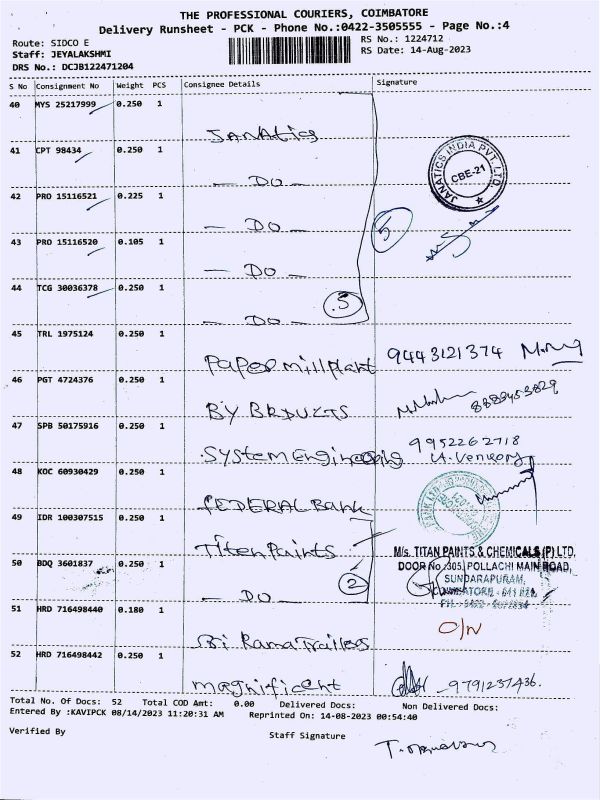 THE PROFESSIONAL COURIERS, COIMBATORE
Delivery Runsheet - PCK - Phone No.:0422-3505555 - Page No.:4
Route: SIDCO E
RS No.: 1224712
Staff: JEYALAKSHMI
RS Date: 14-Aug-2023
DRS No.: DCJB122471204
S No Consignment No Weight PCS Consignee Details Signature
40 MYS 25217999 0.250 1
JANATICS
41 CPT 98434 0.250 1
— DO —
JANATICS INDIA PVT. LTD.
CBE-21
42 PRO 15116521 0.225 1
— DO —
5
43 PRO 15116520 0.105 1
— DO —
44 TCG 30036378 0.250 1
5
— DO —
45 TRL 1975124 0.250 1
Paper mill plant 9443121374
46 PGT 4724376 0.250 1
BY BRDUCTS
47 SPB 50175916 0.250 1
9952262718
System Engineering
48 KOC 60930429 0.250 1
FEDERAL Bank
49 IDR 100307515 0.250 1
Titen Paints
M/s. TITAN PAINTS & CHEMICALS (P) LTD.
50 BDQ 3601837 0.250 1
DOOR No :305, POLLACHI MAIN ROAD,
SUNDARAPURAM,
2
— DO —
51 HRD 716498440 0.180 1
O/N
Sri Rama Trailers
52 HRD 716498442 0.250 1
magnificent 9791237436.
Total No. Of Docs: 52 Total COD Amt: 0.00 Delivered Docs: Non Delivered Docs:
Entered By :KAVIPCK 08/14/2023 11:20:31 AM Reprinted On: 14-08-2023 00:54:40
Verified By
Staff Signature